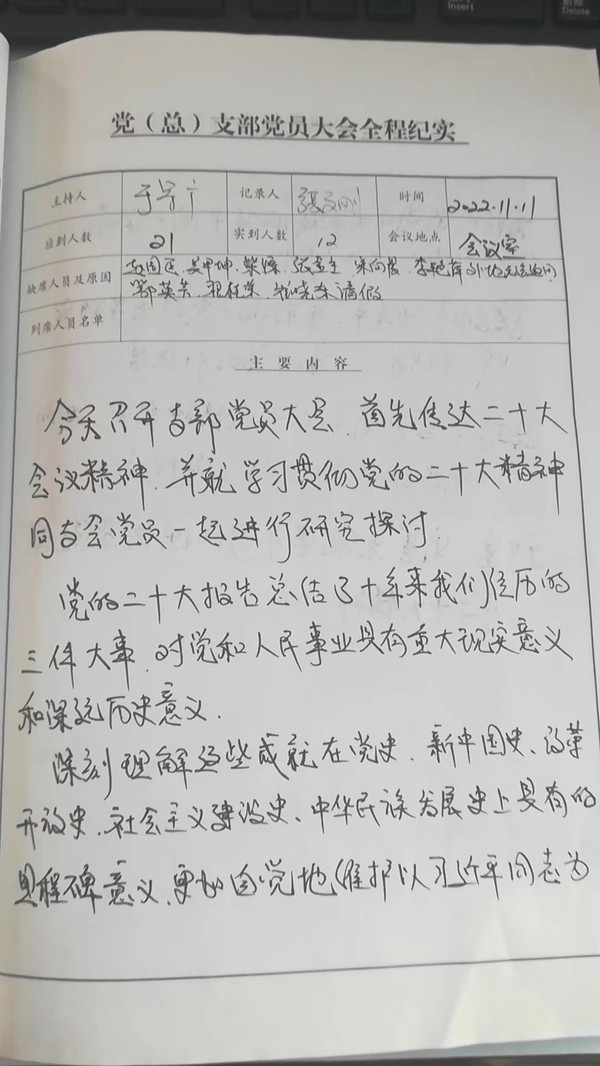 Insert
Delete
党（总）支部党员大会全程纪实
主持人 于守广 记录人 时间 2022.11.11
应到人数 21 实到人数 12 会议地点 会议室
缺席人员及原因
请假
到席人员名单
主要内容
今天召开支部党员大会、首先传达二十大
会议精神、并就学习贯彻党的二十大精神
同与会党员一起进行研究探讨.
党的二十大报告总结了十年来我们经历的
三件大事、对党和人民事业具有重大现实意义
和深远历史意义.
深刻理解这些成就在党史、新中国史、改革
开放史、社会主义建设史、中华民族发展史上具有的
里程碑意义、更加自觉地维护以习近平同志为